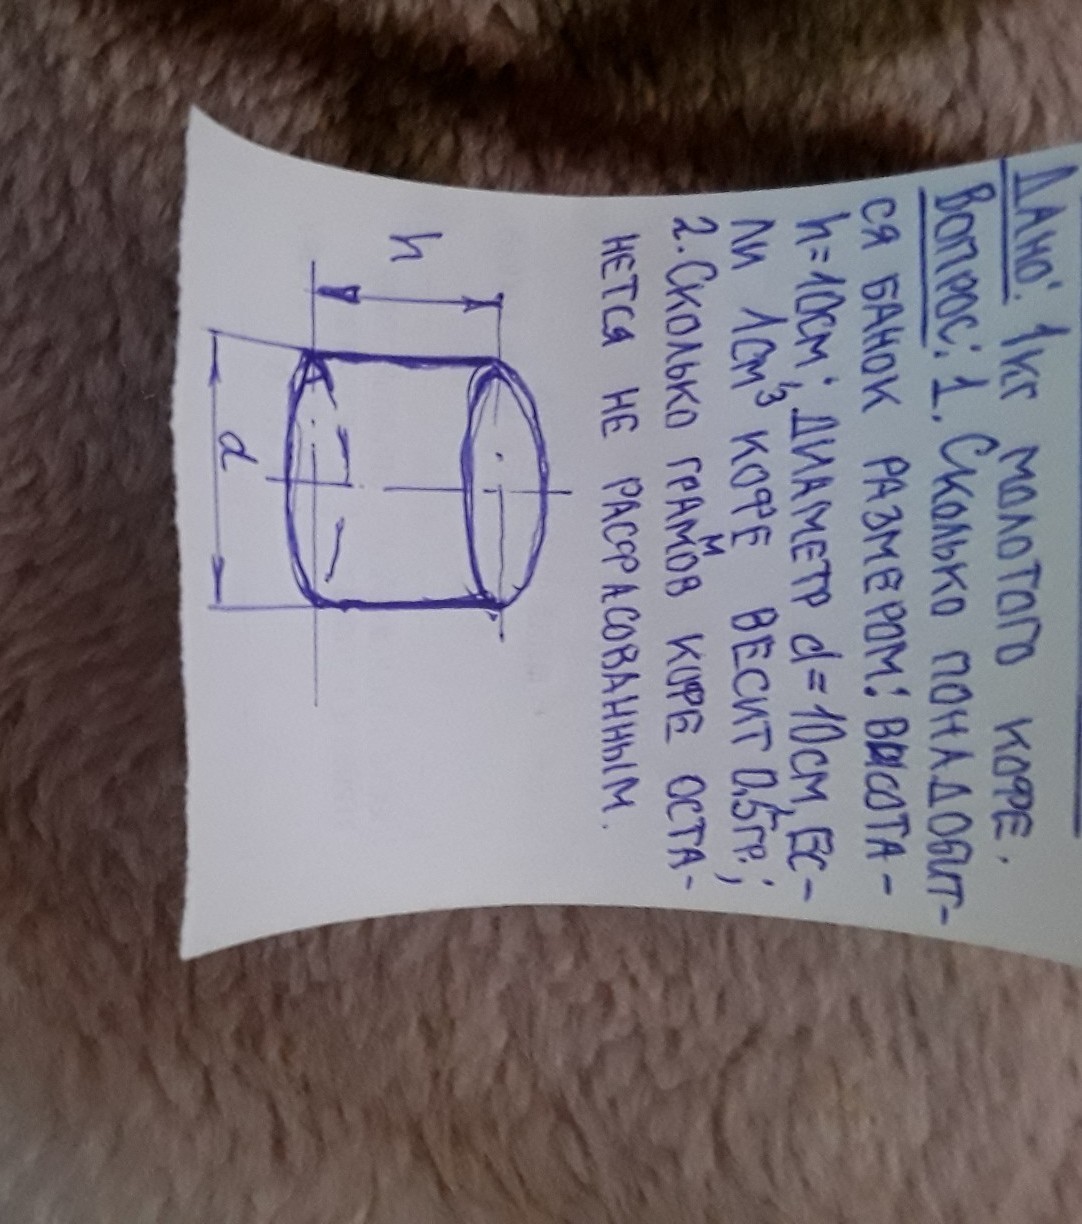 Дано: 1кг молотого кофе.
Вопрос: 1. Сколько понадобит-
ся банок размером: высота -
h=10см; диаметр d=10см, ес-
ли 1см³ кофе весит 0,5гр.;
2. Сколько граммов кофе оста-
нется не расфасованным.
h
d